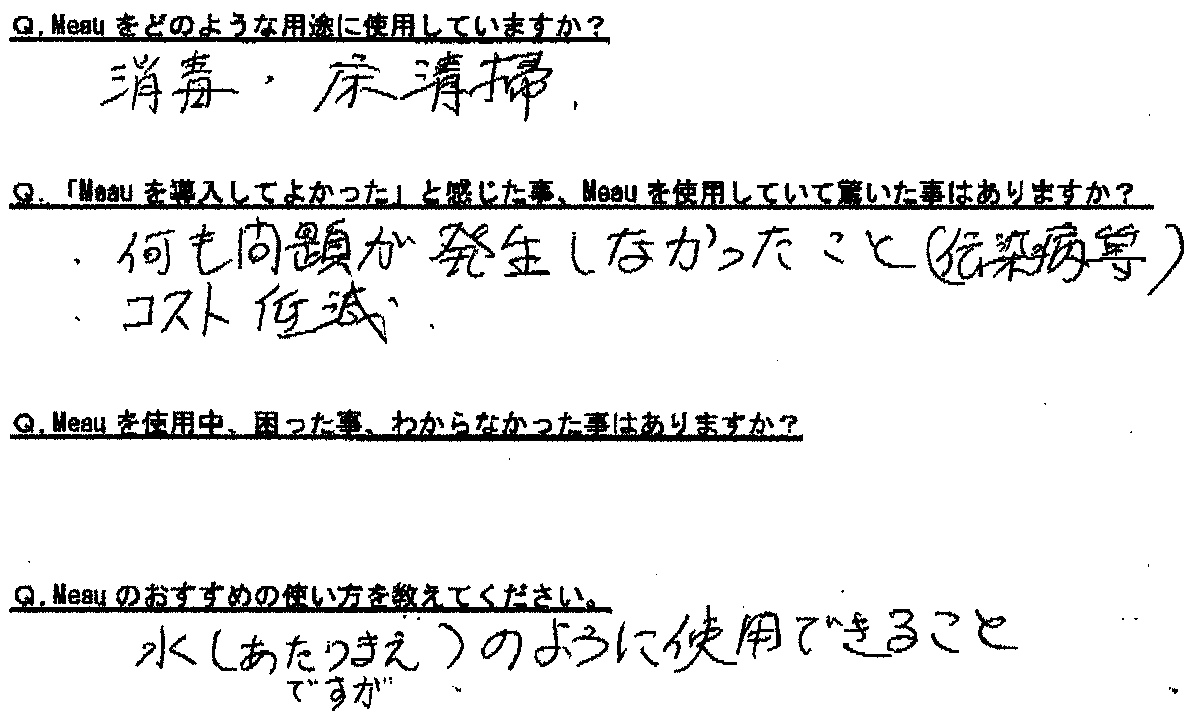 Q.Meauをどのような用途に使用していますか？
消毒・床清掃.
Q.「Meauを導入してよかった」と感じた事、Meauを使用していて驚いた事はありますか？
・何も問題が発生しなかったこと(伝染病等)
・コスト低減.
Q.Meauを使用中、困った事、わからなかった事はありますか？
Q.Meauのおすすめの使い方を教えてください。
水(あたりまえ)のように使用できること
ですが